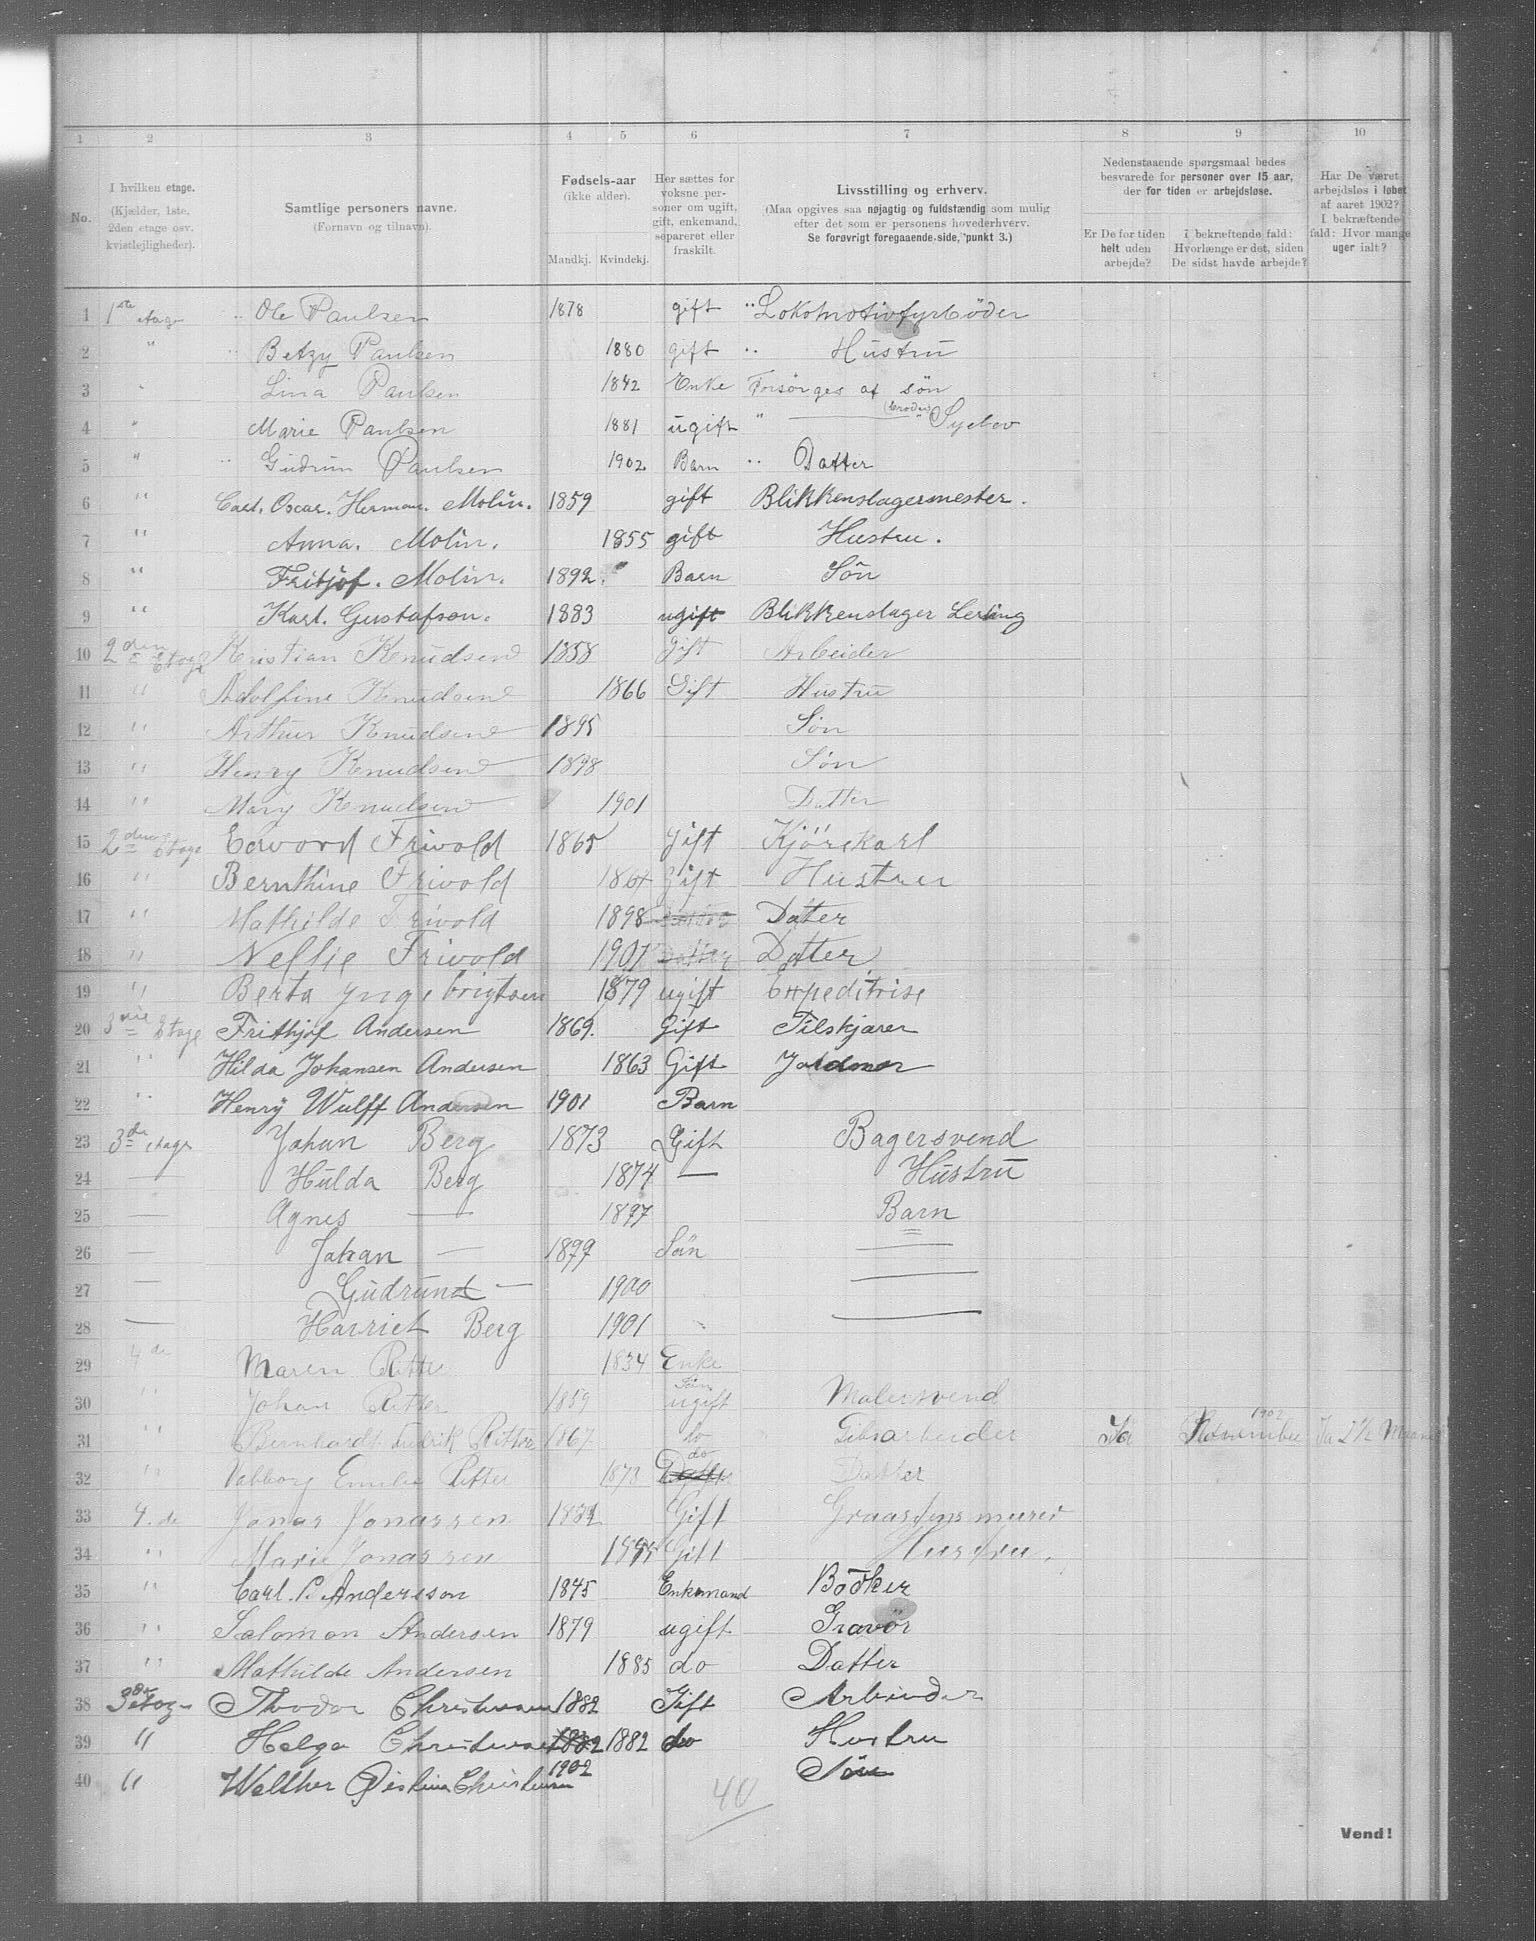 1 2 3 4 5 6 7 8 9 10
No.
I hvilken etage.
(Kjælder, 1ste,
2den etage osv.
kvistlejligheder).
Samtlige personers navne.
(Fornavn og tilnavn).
Fødsels-aar
(ikke alder).
Mandkj. Kvindekj.
Her sættes for
voksne per-
soner om ugift,
gift, enkemand,
separeret eller
fraskilt.
Livsstilling og erhverv.
(Maa opgives saa nøjagtig og fuldstændig som mulig
efter det som er personens hovederhverv.
Se forøvrigt foregaaende side, punkt 3.)
Nedenstaaende spørgsmaal bedes
besvarede for personer over 15 aar,
der for tiden er arbejdsløse.
Er De for tiden
helt uden
arbejde?
I bekræftende fald:
Hvorlænge er det, siden
De sidst havde arbejde?
Har De været
arbejdsløs i løbet
af aaret 1902?
I bekræftende
fald: Hvor mange
uger ialt?
1 1ste etage " Ole Paulsen 1878 gift " Lokomotivfyrbøder
2 " " Betzy Paulsen 1880 gift " Hustru
3 " Lina Paulsen 1842 Enke Forsörges af sön
4 " Marie Paulsen 1881 ugift " (broder) Syerv
5 " " Gudrun Paulsen 1902 Barn " Datter
6 " Carl. Oscar. Herman. Molin. 1859 gift Blikkenslagermester.
7 " Anna. Molin. 1855 gift Hustru.
8 " Fritjof. Molin. 1892. Barn Sön
9 " Karl. Gustafson. 1883 ugift Blikkenslager Lerling
10 2den Etage Kristian Knudsen 1858 Gift Arbeider
11 " Adolfine Knudsen 1866 Gift Hustru
12 " Arthur Knudsen 1895 Søn
13 " Henry Knudsen 1898 Søn
14 " Mary Knudsen 1901 Datter
15 2den Etage Edvard Frivold 1865 Gift Kjörekarl
16 " Bernthine Frivold Gift Hustru
17 " Mathilde Frivold 1898 Dater
18 " Nellie Frivold 1901 Datter Dater
19 " Berta Yngebrigtsen 1879 ugift Expeditrise
20 3die Etage Frithjof Andersen 1869. Gift Filskjærer
21 " Hilda Johansen Andersen 1863 Gift Jordmor
22 " Henrÿ Wulff Andersen 1901 Barn
23 3de etage Johan Berg 1873 Gift Bagersvend
24 — Hulda Berg 1874 — Hustru
25 — Agnes — 1897 Barn
26 — Johan — 1899 Sön —
27 — Gudrund — 1900 —
28 — Harriet Berg 1901 —
29 4de Maren Ritter 1834 Enke
30 " Johan Ritter 1859 Søn ugift Malersvend
31 " Bernhardt Fredrik Ritter 1867 do Gibsarbeider Ja November 1902 Ja 2½ Maaned
32 " Valborg Emilie Ritter 1873 do Datter Datter
33 4.de Jonas Jonassen Gift Graastensmurer
34 " Marie Jonassen Gift Hustru.
35 " Carl. P. Andersson 1845 Enkemand Bödker
36 " Salomon Andersen 1879 ugift Gravör
37 " Mathilde Andersen 1885 do Datter
38 3de etage Thodor Christensen 1882 Gift Arbeider
39 " Helga Christensen 1882 1882 do Hustru
40 " Walther Christensen 1902 Søn
40
Vend!